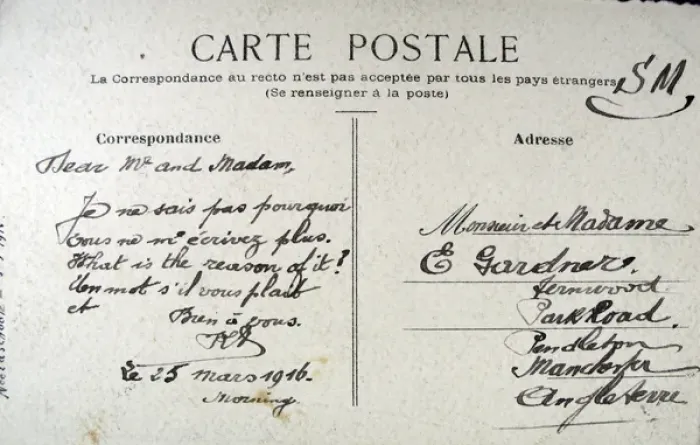 CARTE POSTALE
La Correspondance au recto n'est pas acceptée par tous les pays étrangers
(Se renseigner à la poste)
SM
Correspondance
Dear Mr and Madam,
Je ne sais pas pourquoi
vous ne m'écrivez plus.
What is the reason of it?
Un mot s'il vous plaît
et
Bien à vous.
Le 25 mars 1916.
Morning
Adresse
Monsieur et Madame
E Gardner.
Fernwood
Park Road.
Pendleton
Manchester
Angleterre